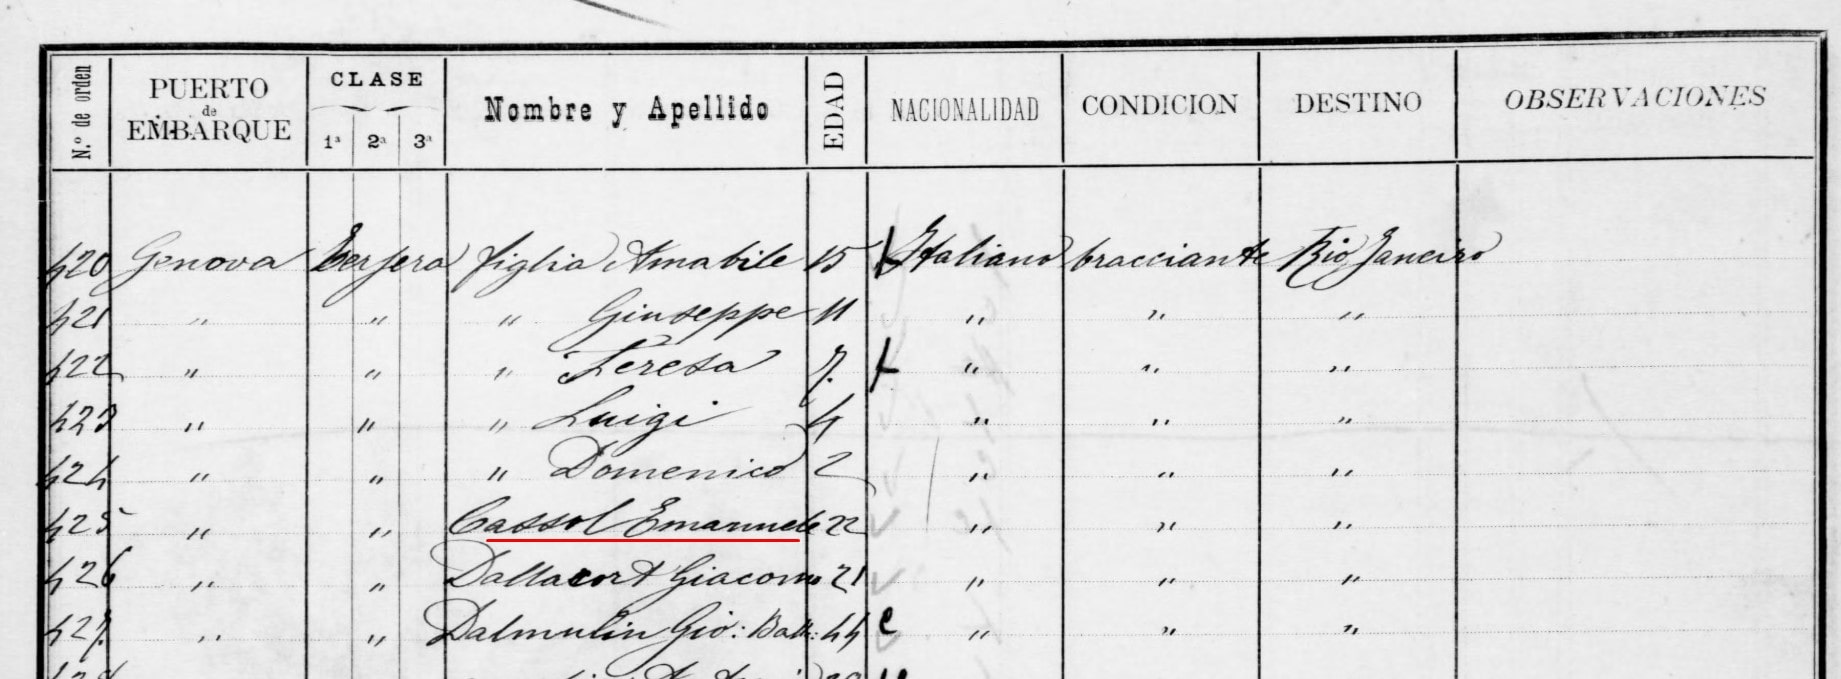 N.º de orden PUERTO de EMBARQUE CLASE 1ª 2ª 3ª Nombre y Apellido EDAD NACIONALIDAD CONDICION DESTINO OBSERVACIONES
420 Genova Terzera figlia Amabile 15 Italiano bracciante Rio Janeiro
421 " " " Giuseppe 11 " " "
422 " " " Teresa 7. " " "
423 " " " Luigi 4 " " "
424 " " " Domenico 2 " " "
425 " " Cassol Emanuele 22 " " "
426 " " Dallacort Giacomo 21 " " "
427. " " Dalmulin Gio: Batt: 44 " " "